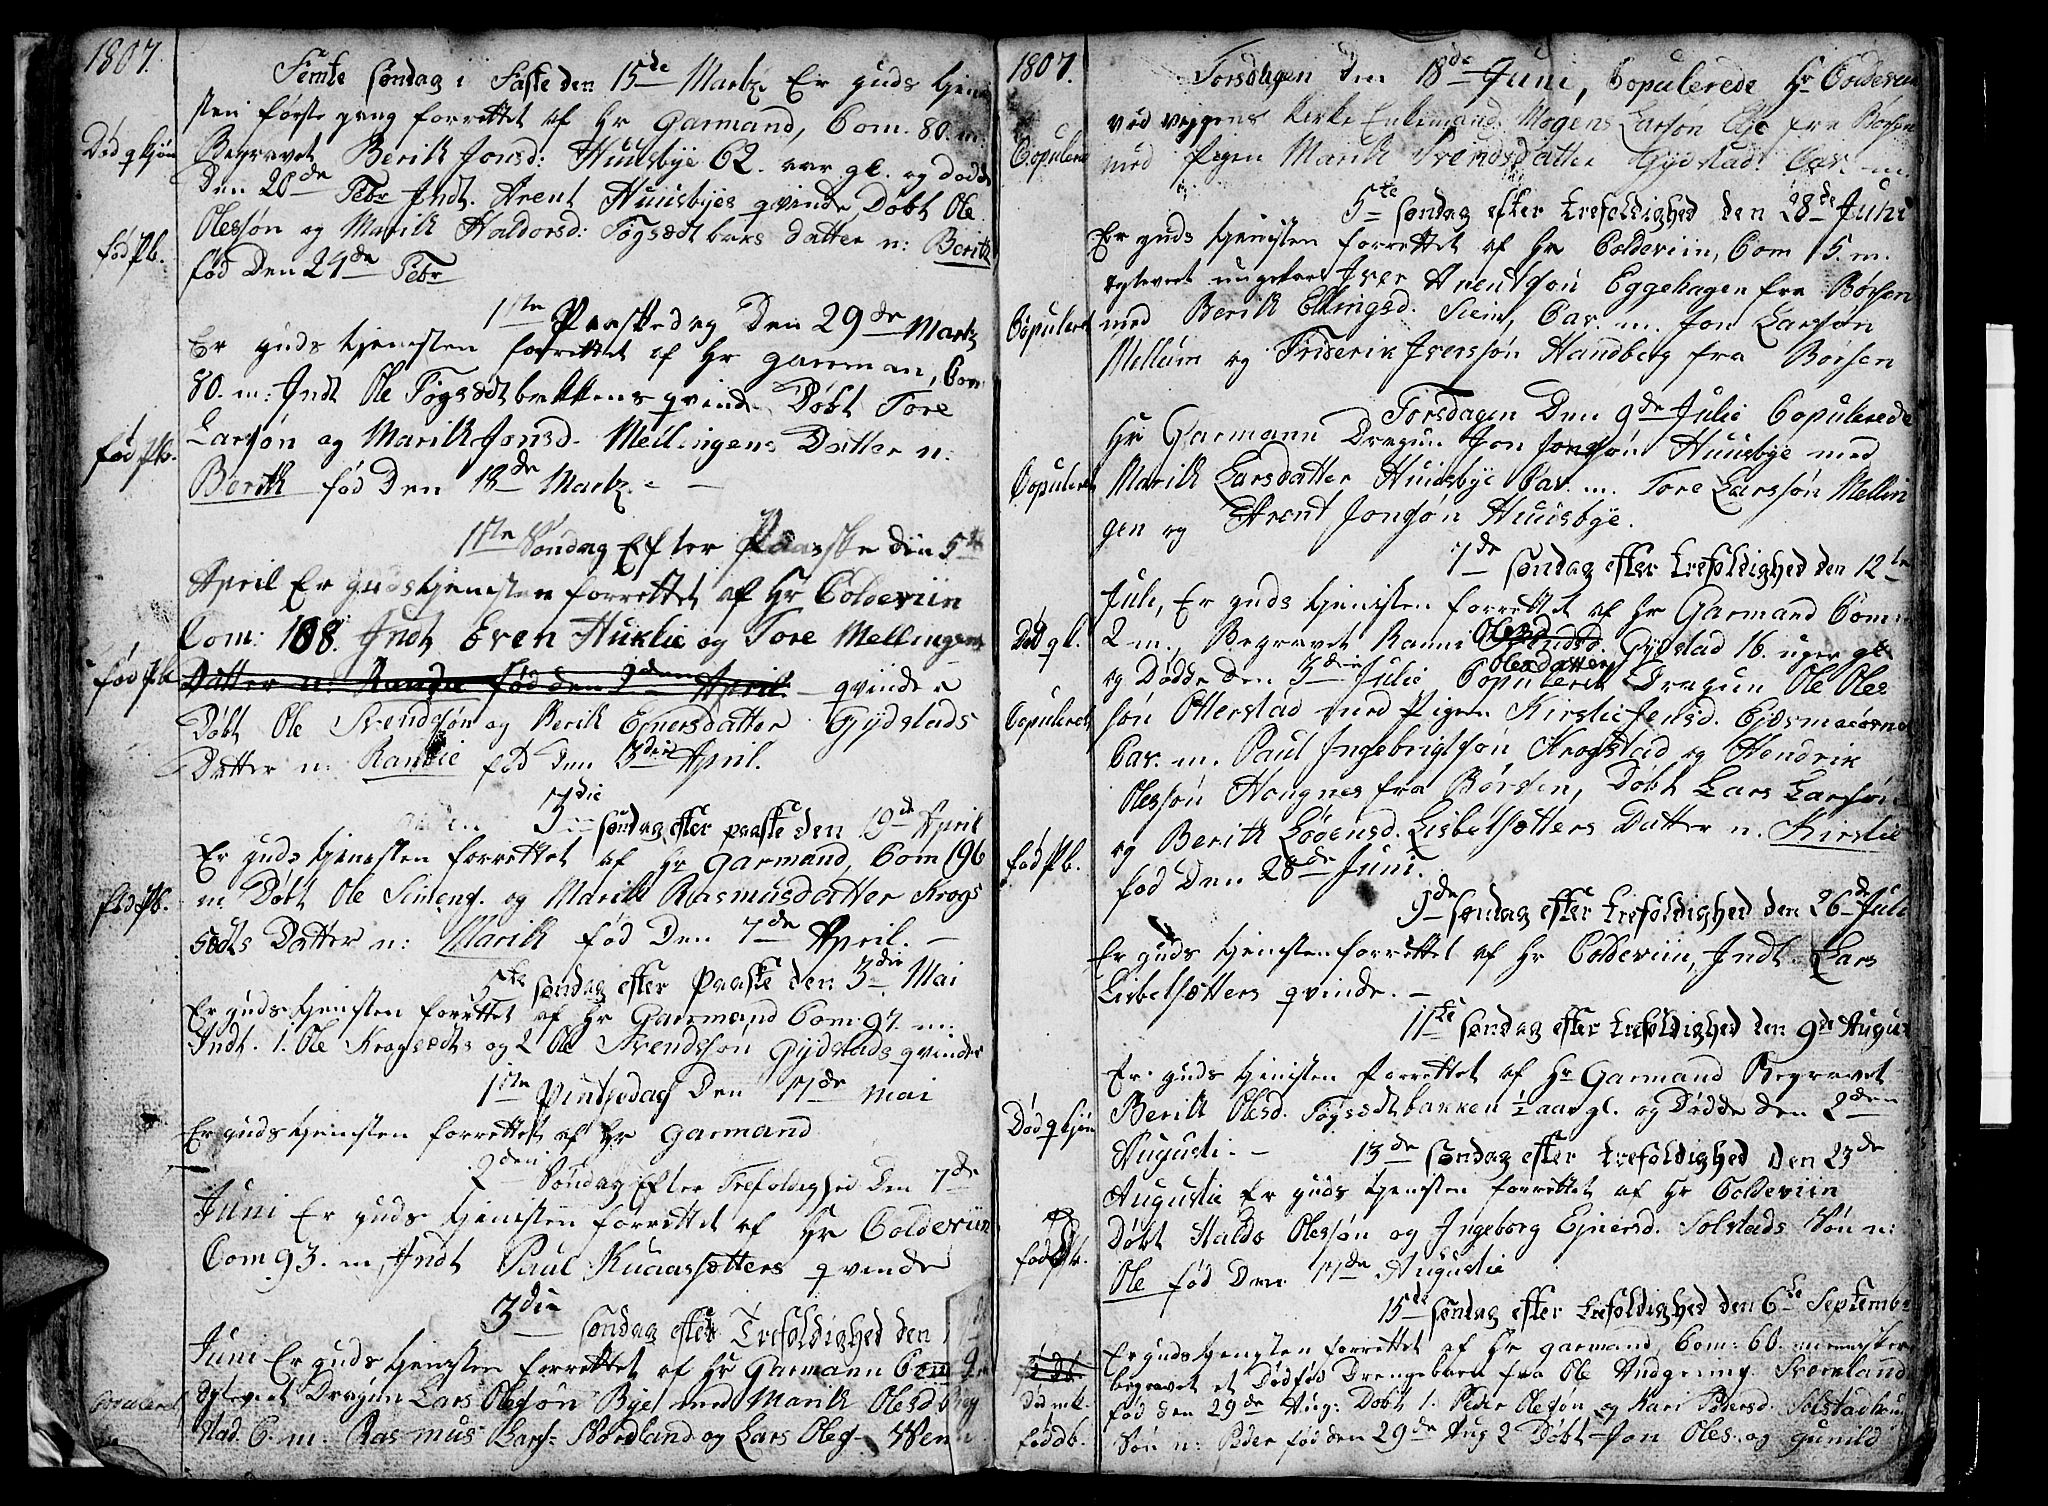 1807.
Femte søndag i Faste den 15de Martz. Er guds tjene
sten første gang forrettet af Hr Garmand, Com. 80. m:
Død qkjøn
Begravet Berik Jonsd: Huusbye 62. aar gl. og døde
den 28de Febr Indt. Arent Huusbyes qvinde, Døbt Ole
Olessøn og Marik Haldorsd: Fogsædtbaks datter n: Berit
fød Pb.
fød Den 24de Febr
1ste Paaskedag Den 29de Martz
Er guds tjenesten forrettet af Hr Garman, Com
80. m: Indt Ole Fogsædtbakkens qvinde Døbt Tore
fød Pb.
Larsøn og Marik Jonsd. Mellingens Datter n:
Berith fød Den 18de Martz. - -
1ste Søndag Efter Paaske den 5te
April Er guds tjenesten forrettet af Hr Coldeviin
Com: 108. Indt Even Huklie og Tore Mellingens
fød Pb
Datter n: Randie fød den 3den April. - qvinder
Døbt Ole Svendssøn og Berik Ejnersdatter Gydstads
Datter n: Randie fød den 3die April.
3die søndag efter paaske den 19de April
Er guds tjenesten forrettet af Hr Garmand, Com 196
fød Pb.
m Døbt Ole Simens. og Marik Rasmusdatter Krogs
sædts Datter n: Marik fød Den 7de April. -
5te søndag efter Paaske den 3die Mai
Er guds tjenisten forrettet af Hr Garmand Com: 97. m:
Indt. 1. Ole Krogsædts og 2 Ole Svendssøn Gydstads qvinder
1ste Pintsedag Den 17de Mai
Er guds tjenisten forrettet af Hr Garmand
2den Søndag Efter Trefoldighed Den 7de
Juni Er guds tjenisten forrettet af Hr Coldeviin
Com 93. m, Indt Paul Kuaassætters qvinde
3die søndag efter Trefoldighed den
Juni Er guds tjenesten forrettet af Hr Garmann Com
Copuleret
Dragun Lars Olessøn Bye, med Marik Olesd
stad C. m. Rasmus Lars: Nordland og Lars Oles-
1807.
Torsdagen den 18de Juni, Copulerede Hr Coldeviin
ved viggens Kirke Enkemand Mogens Larsøn Lie fra Børsen
Copuleret
med Pigen Marik Svendsdatter Gydstad. Cav. m.
5te søndag efter trefoldighed den 28de Juni
Er guds tjenisten forrettet af Hr Coldeviin, Com 15. m.
ungekarl Iver Arentsøn Eggehagen fra Børsen
Copuleret
med Berik Ellingsd. Stein, Cav. m. Jon Larsøn
Mellum og Friderik Iverssøn Handberg fra Børsen
Torsdagen Den 9de Julie Copulerede
Hr Garmann Dragun Jon Jonsøn Huusbye med
Copuleret
Marik Larsdatter Huusbye Cav. m. Tore Larssøn Mellin
gen og Arent Jonsøn Huusbye.
7de søndag efter trefoldighed den 12te
Juli, Er guds tjenisten forrettet af Hr Garmand Com
Død qk.
2 m., Begravet Ranni Olesd Gydstad 16. uger gl.
Olesdatter
og Døde Den 3die Julie Copuleret Dragun Ole Oles
Copuleret
søn Otterstad med Pigen Kirstie Jensd.
Cav. m. Paul Ingebrigtsøn, Krogstad og Hendrik
Olessøn Hougnes fra Børsen, Døbt Lars Larsøn
og Berith Lødensd. Lisbetsætters Datter n. Kirstie
fød Pb.
fød Den 28de Juni.
9de søndag efter trefoldighed den 26de Juli
Er guds tjenisten forrettet af Hr Coldeviin, Indt Lars
Lisbetsætters qvinde. -
11te søndag efter trefoldighed den 9de August
Er guds tjenisten forrettet af Hr Garmand Begravet
Død qkjøn
Berik Olesd. Fogssædtbakken ½ aar gl. og Døde den 2den
Augusti. - 13de søndag efter trefoldighed den 23de
Augustie Er guds tjenisten forrettet af Hr Coldeviin
Døbt Haldo Olessøn og Ingeborg Ejnersd. Solstads Søn n:
fød
Ole fød Den 17de Augustie
15de søndag efter trefoldighed den 6te Septembr
Er guds tjenesten forrettet af Hr Garmand, Com: 60. mennisker
Død mk.
begravet et Dødfød Drengebarn fra Ole
fød den 29de Aug: Døbt 1. Peder Olesøn og Kari Pedersd. Solstadtrøen
fød db.
Søn n: Peder fød den 29de Aug 2 Døbt Jon Oles. og Gunild